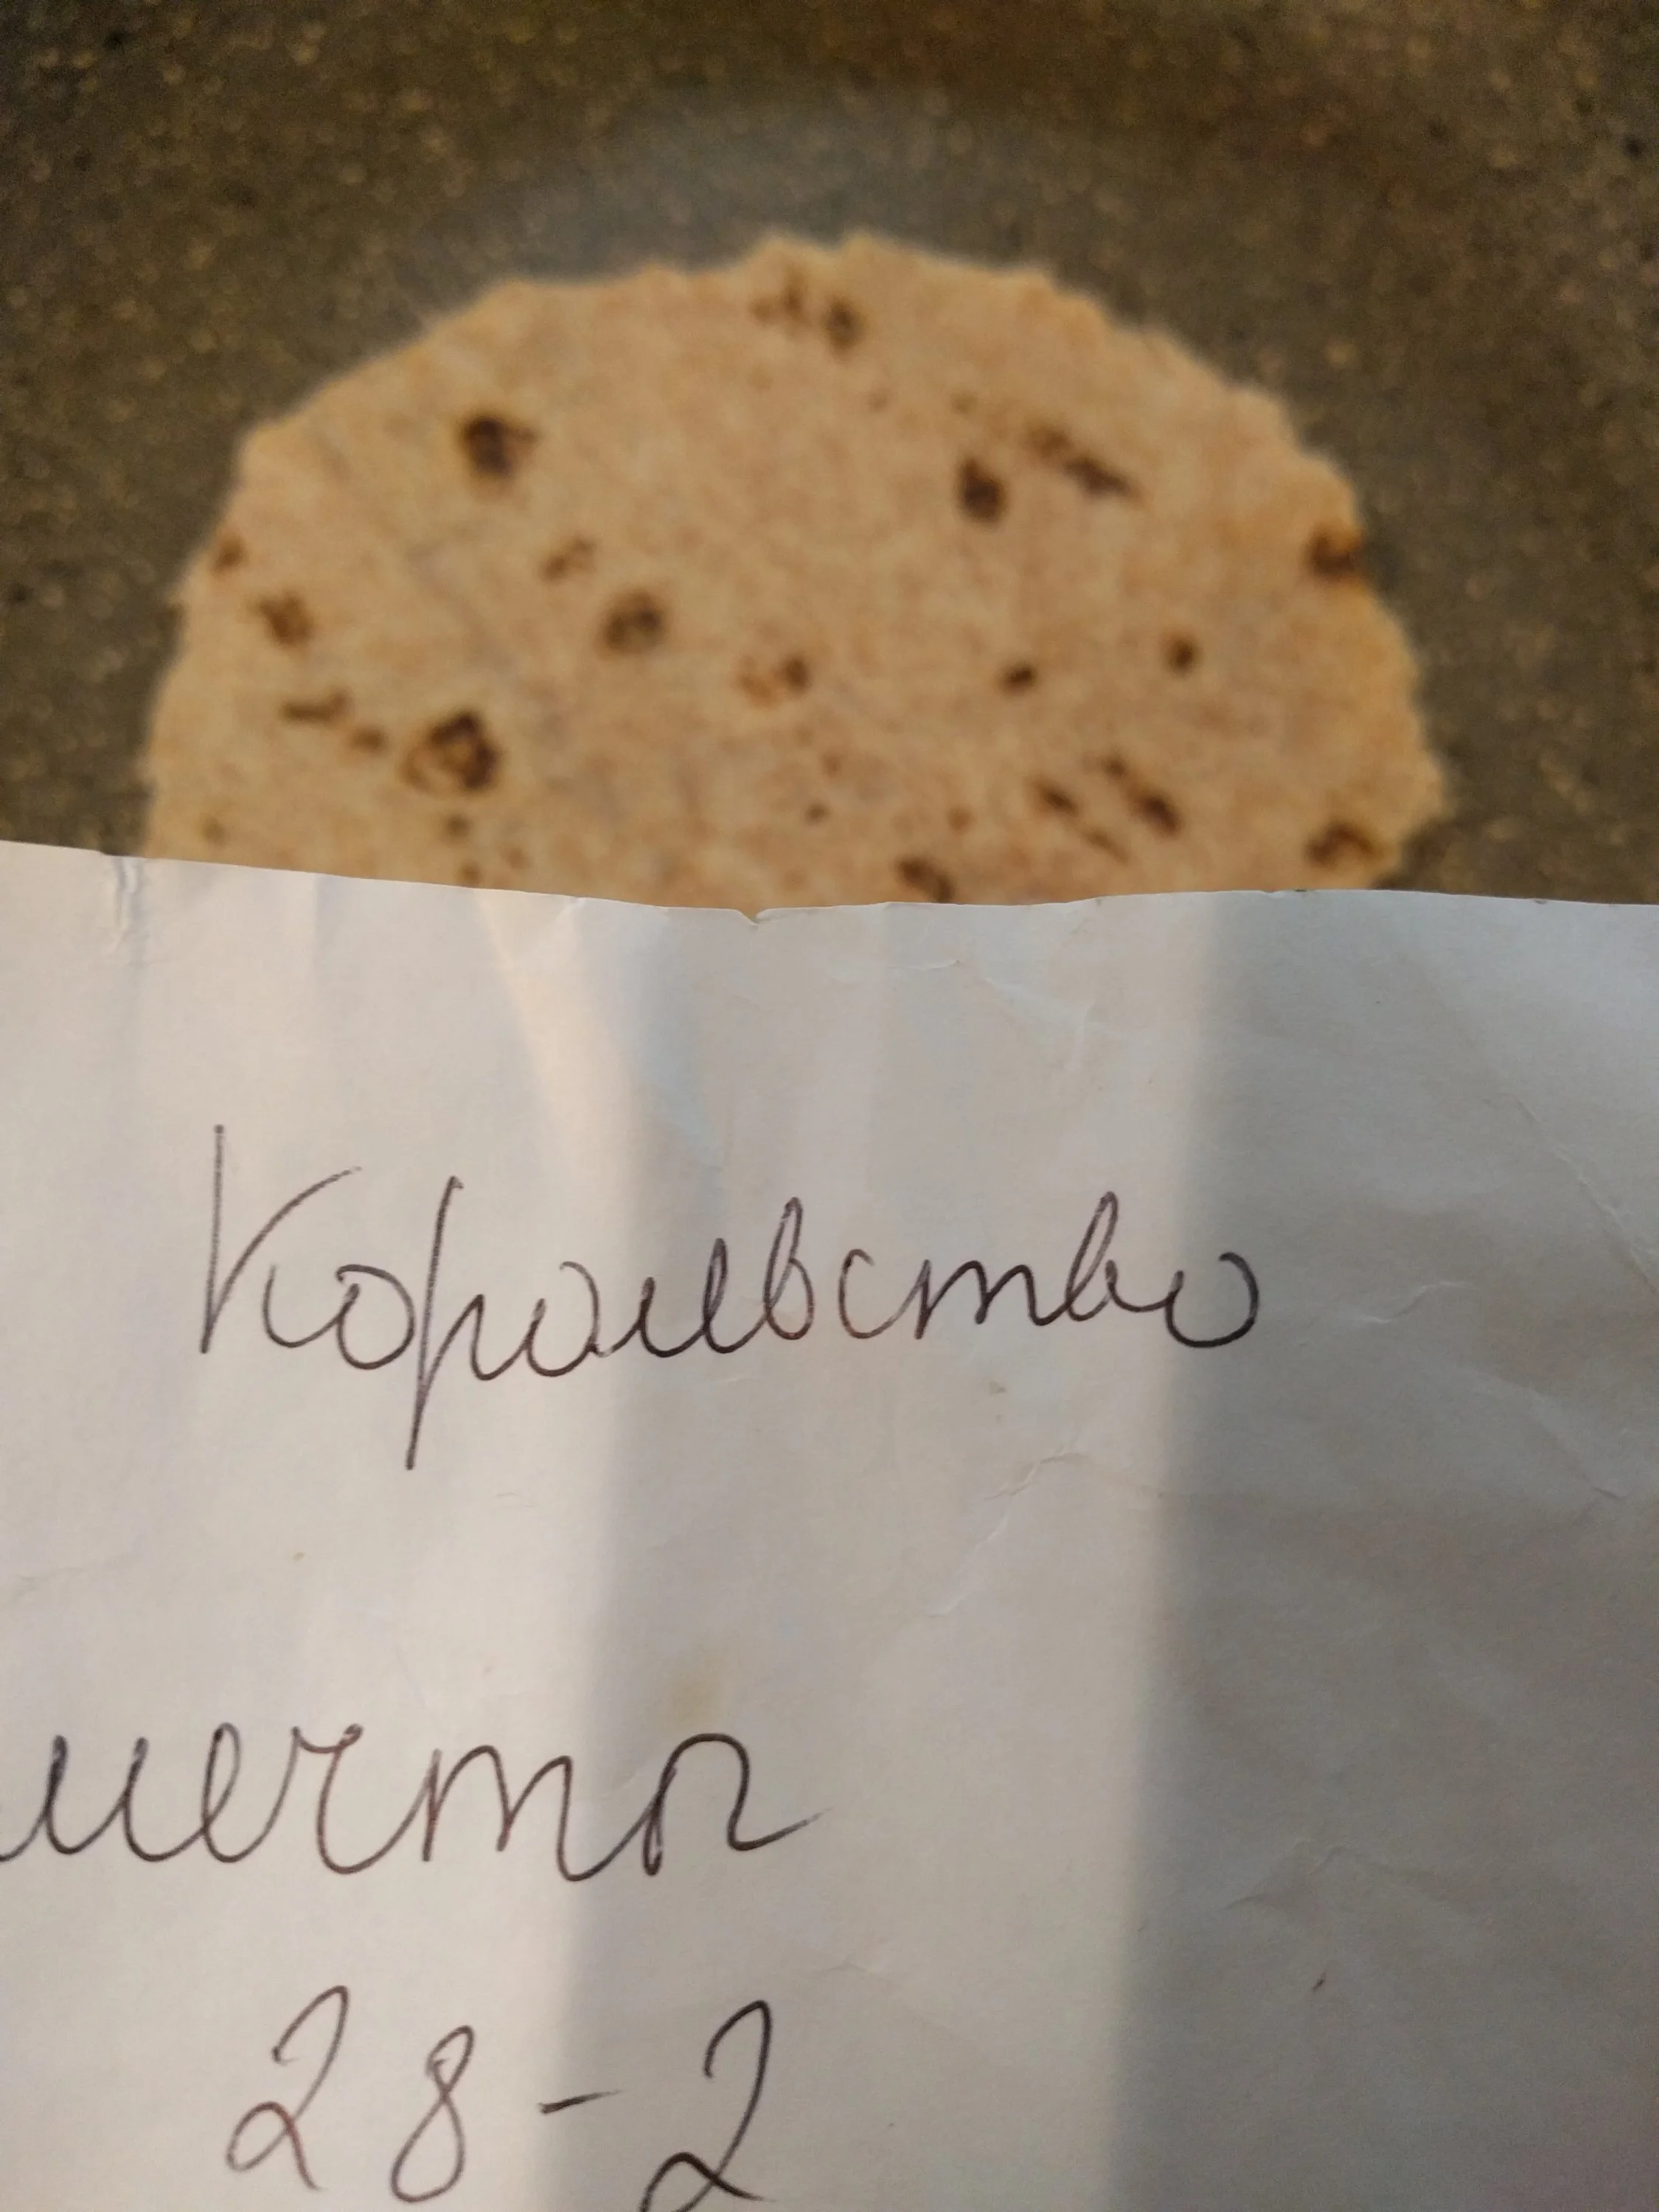 Королевство
мечта
28-2